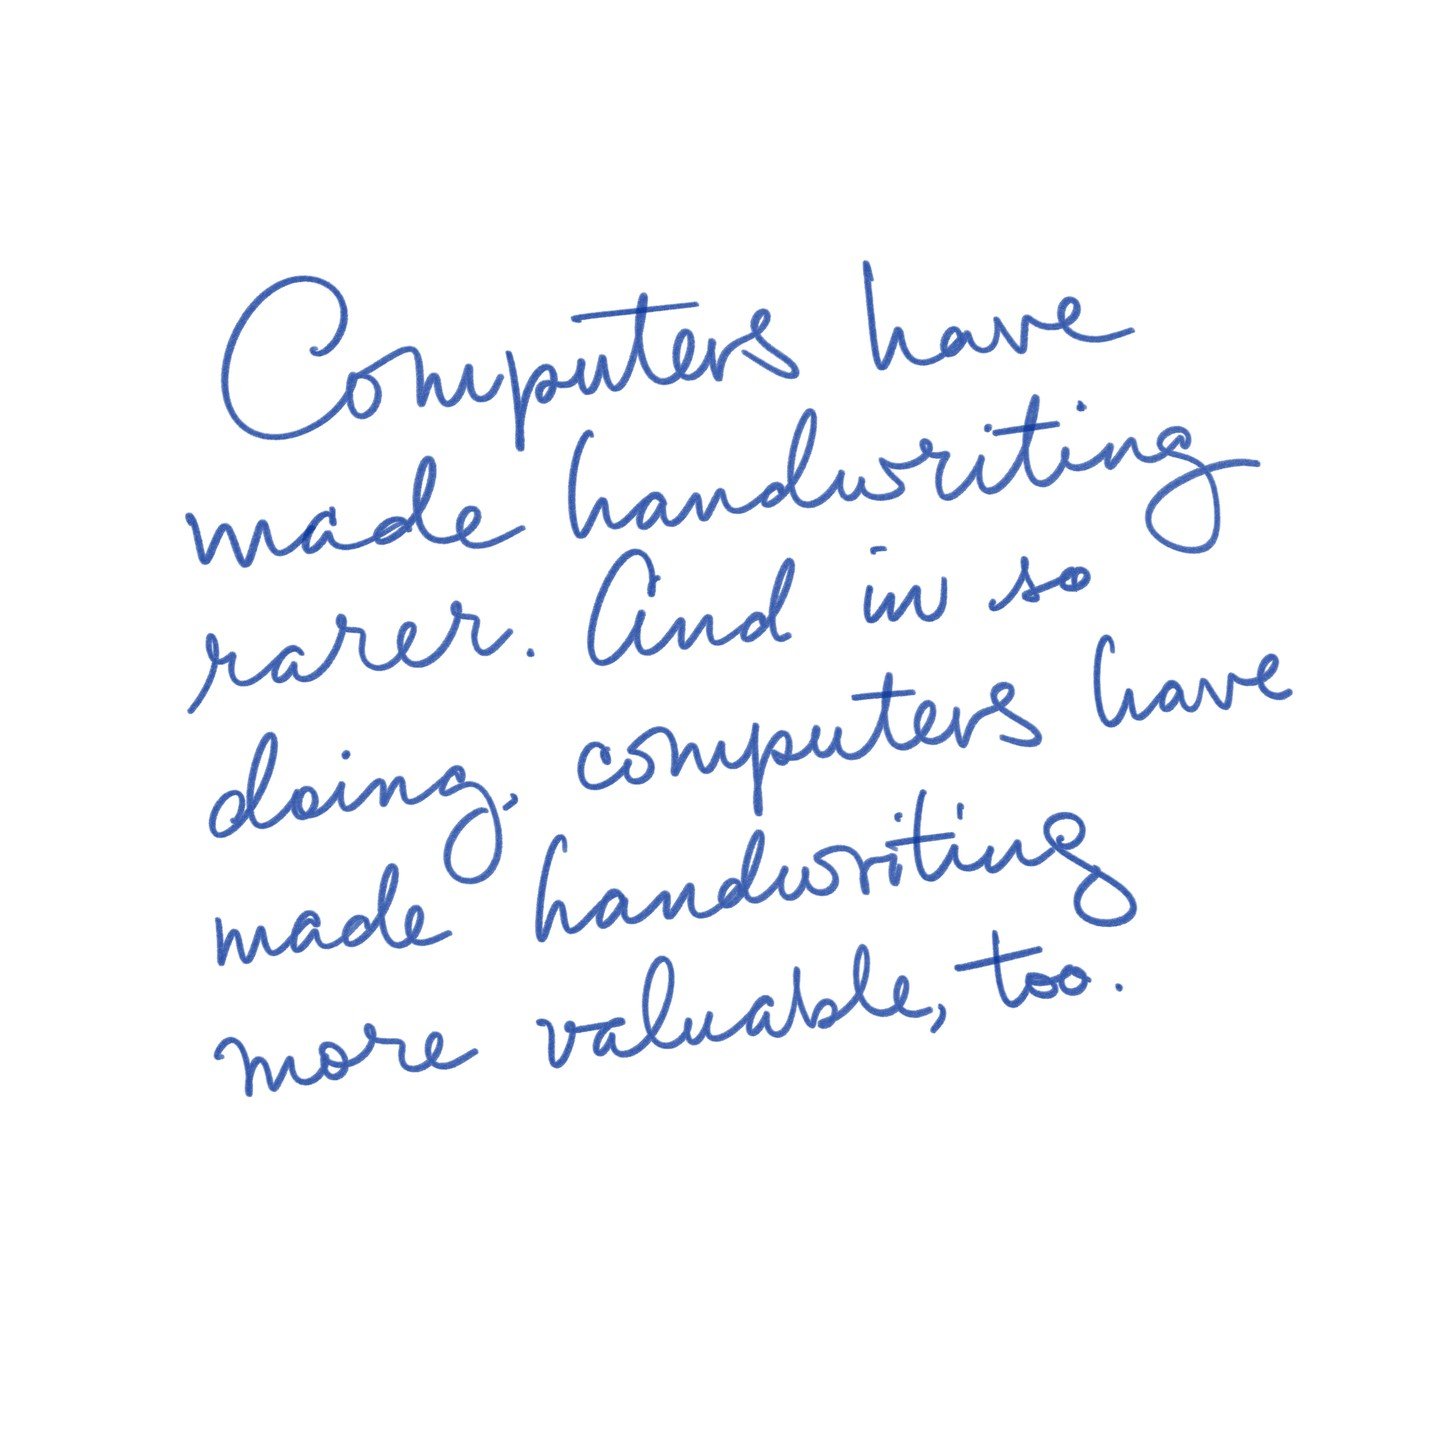 Computers have
made handwriting
rarer. And in so
doing, computers have
made handwriting
more valuable, too.